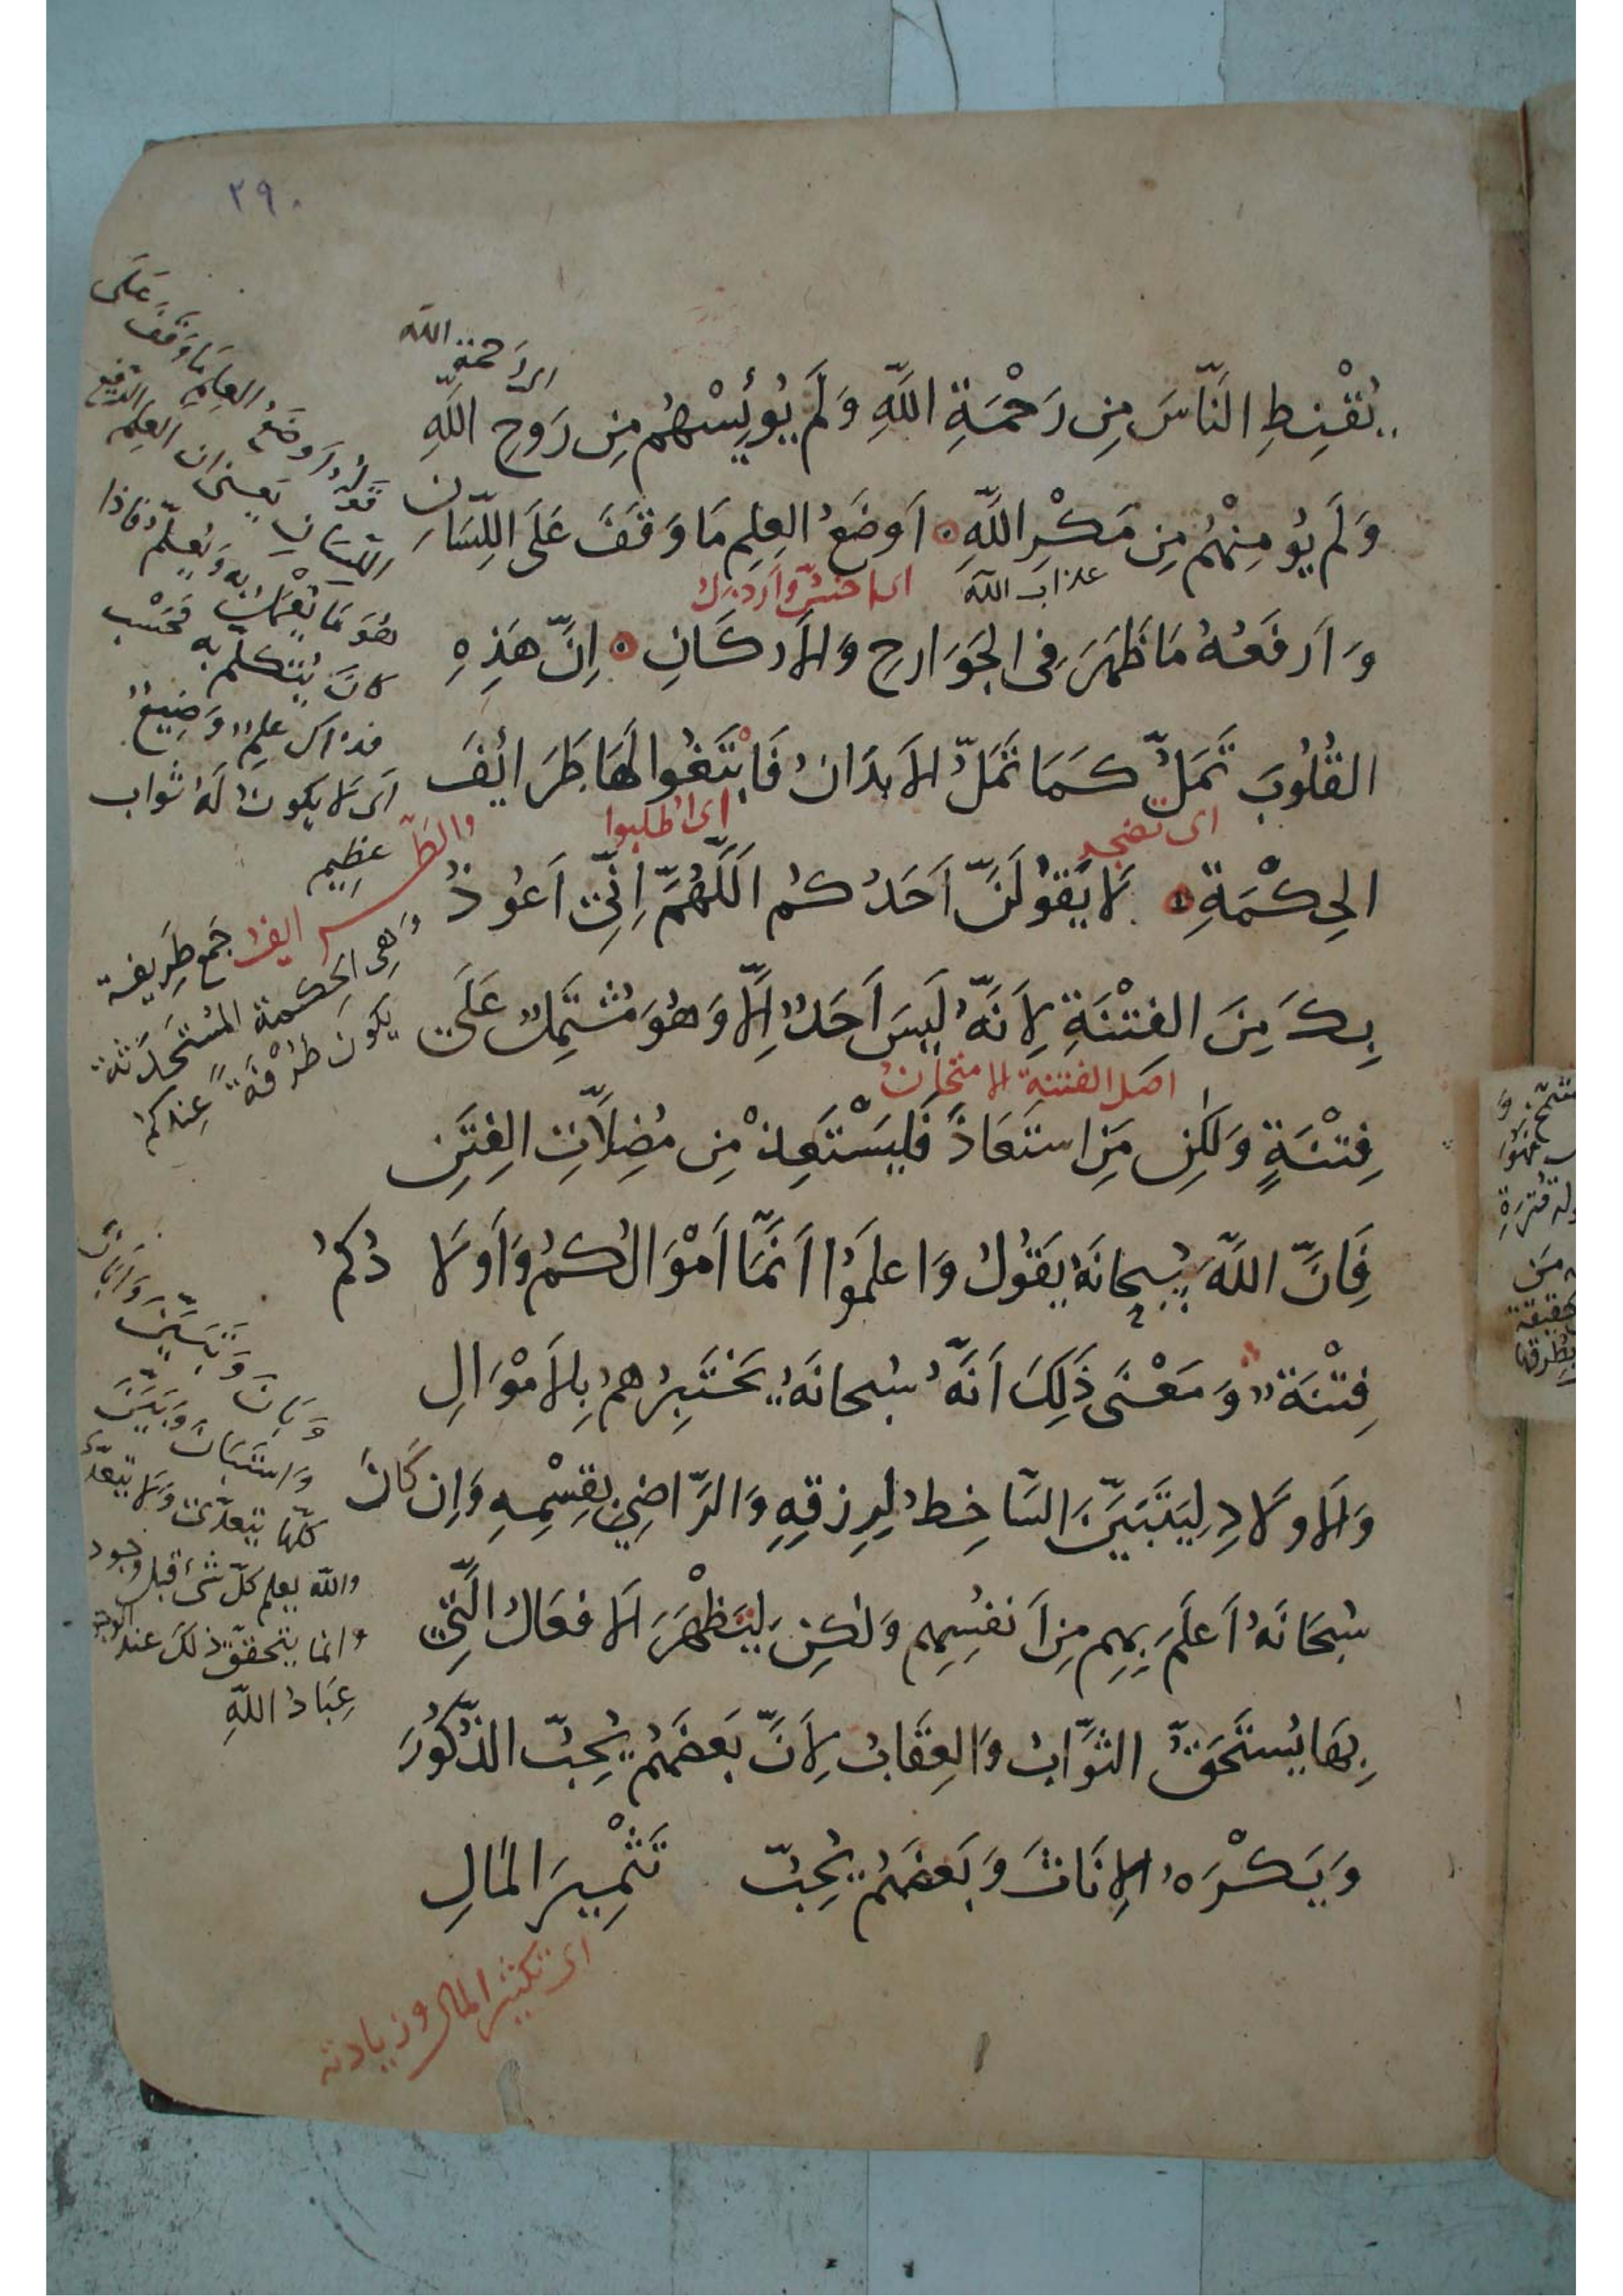 ٢٩٠
اى رحمة الله
يُقْنِطِ النَّاسَ مِن رَحْمَةِ اللَّهِ وَلَم يُوئِسْهُم مِن رَوحِ اللَّهِ
وَلَم يُومِنْهُم مِن مَكْرِ اللَّهِ ۞ اَوضَعُ العِلمِ مَا وَقَفَ عَلَى اللِّسَانِ
عذاب الله
وَاَرفَعُهُ مَا ظَهَرَ فِى الجَوَارحِ وَالاَركَانِ ۞ اِنَّ هَذِهِ
القُلُوبَ تَمَلُّ كَمَا تَمَلُّ الاَبدَانُ فَابْتَغُوا لَهَا طَرَائِفَ
اى تضجر
اى اطلبوا
الحِكْمَةِ ۞ لاَ يَقُولَنَّ اَحَدُكُم اَللَّهُمَّ اِنِّى اَعُوذُ
بِكَ مِنَ الفِتْنَةِ لِاَنَّهُ لَيسَ اَحَدٌ اِلاَّ وَهُوَ مُشتَمِلٌ عَلَى
اصل الفتنة الامتحان
فِتْنَةٍ وَلٰكِن مَنِ استَعَاذَ فَليَسْتَعِذْ مِن مُضِلاَّتِ الفِتَنِ
فَاِنَّ اللَّهَ سُبحانَهُ يَقُولُ وَاعلَمُوا اَنَّمَا اَمْوَالُكُم وَاَولاَدُكُم
فِتْنَةٌ وَمَعْنَى ذَلِكَ اَنَّهُ سُبحانَهُ يَختَبِرُهم بِالاَمْوَالِ
وَالاَولاَدِ لِيَتَبَيَّنَ السَّاخِطُ لِرِزقِهِ وَالرَّاضِى بِقِسْمِهِ وَاِن كَانَ
سُبحَانَهُ اَعلَمَ بِهِم مِن اَنفُسِهِم وَلٰكِن لِتَظْهَرَ الاَفعَالُ الَّتِى
بِهَا يُستَحَقُّ الثَّوَابُ وَالعِقَابُ لِاَنَّ بَعضَهُم يُحِبُّ الذُّكُورَ
وَيَكْرَهُ الاِنَاثَ وَبَعضَهُم يُحِبُّ تَثْمِيرَ المَالِ
اى تكثير المال وزيادته
اَوضَعُ العِلمِ مَا وَقَفَ عَلَى
اللِّسَانِ يعنى ان العِلم الرفيع
هُوَ مَا يُعْمَلُ بِه وَيُعلَّم فاذا
كانَ يُتَكلّم بِه فَحَسْب
فذاك علم وَضِيعٌ
اى لا يكونُ لَهُ ثَواب
عظيم
والطرائف جمع طَرِيفة
وَهِى الحِكمة المُستَحدَثة
يكون طُرْفَةً عِندكم
وَبَانَ وَتَبَيَّنَ وَاَبَانَ
وَاستَبَانَ وَبَيَّنَ
كلّها يتعدّى وَلا يتعدّى
والله يعلم كلّ شَىءٍ قبل وجود
وانما يتحقّق ذلكَ عند
عِبَادُ اللهِ